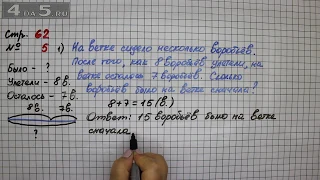 4DA5.RU
Стр. 62
№ 5 1) На ветке сидело несколько воробьев.
После того, как 8 воробьев улетели, на
ветке осталось 7 воробьев. Сколько
воробьев было на ветке сначала?
Было - ?
Улетели - 8 в.
Осталось - 7 в.
8 в. 7 в.
?
8 + 7 = 15 (в.)
Ответ: 15 воробьев было на ветке
сначала